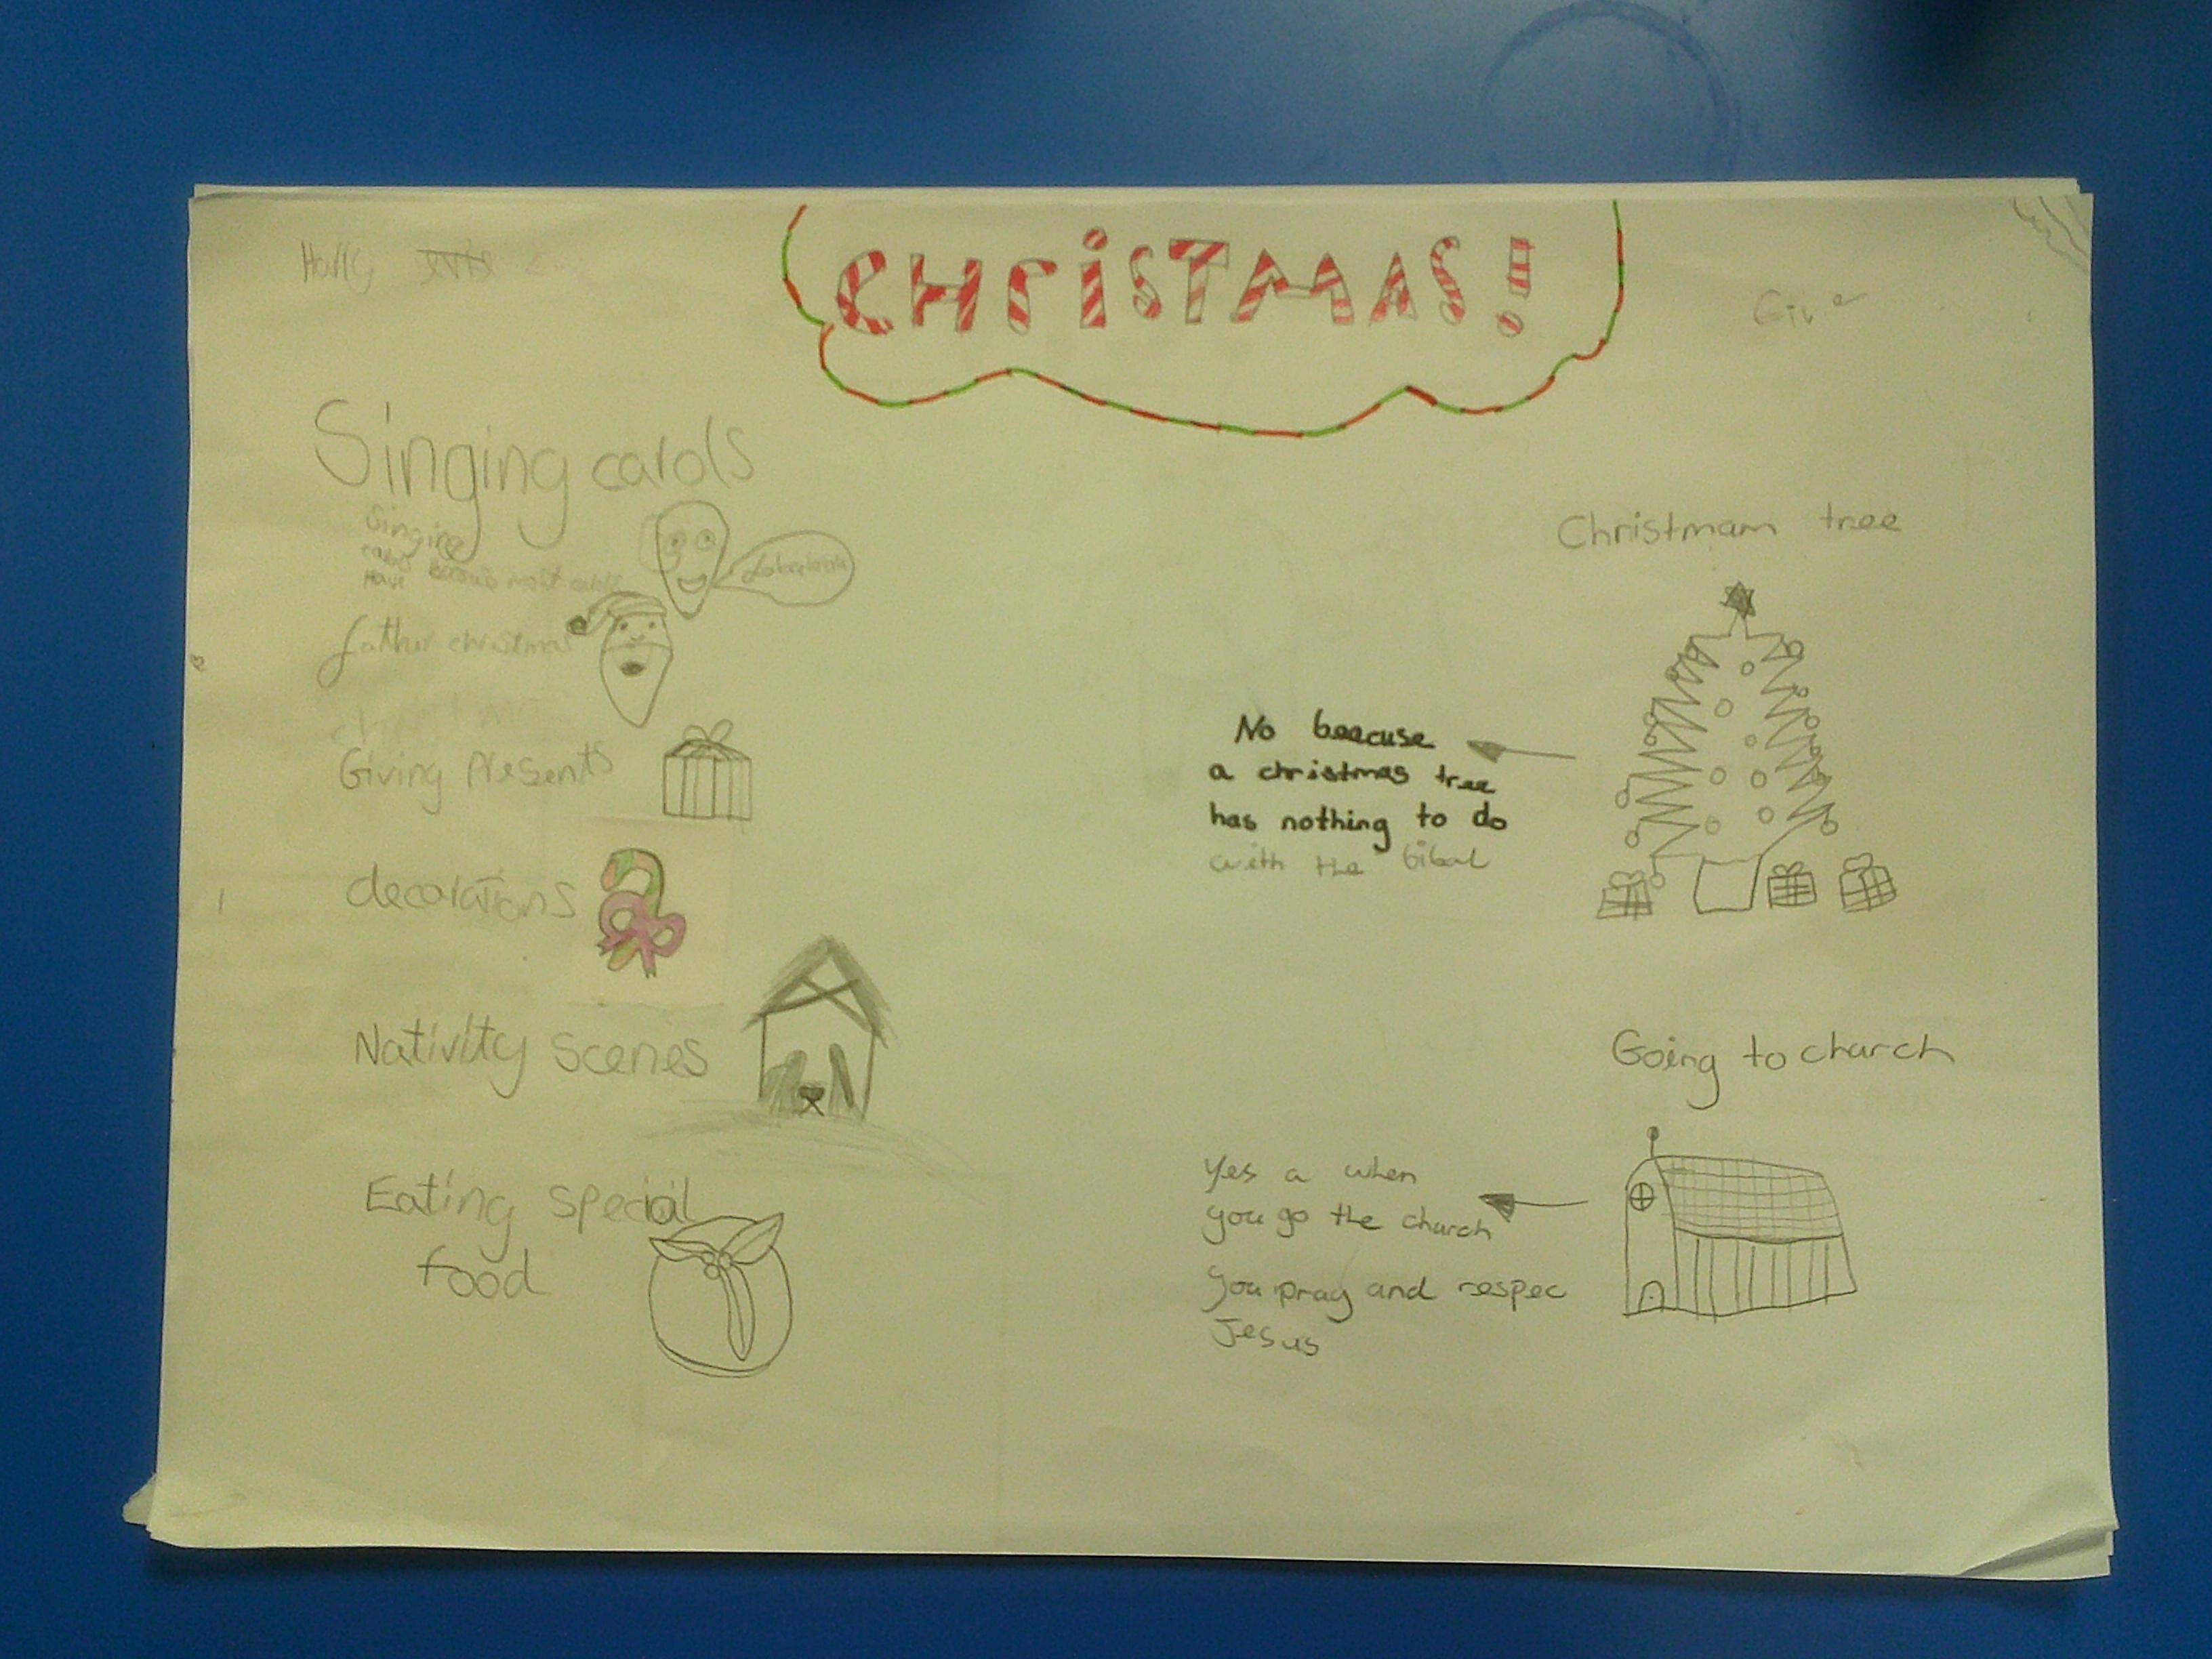 CHRISTMAS!
Holly
Giv
Singing carols
Singing
carols because most carols
Have
father christmas
Giving Presents
decorations
Nativity scenes
Eating special
food
Christmam tree
No beacuse
a christmas tree
has nothing to do
with the bibal
Going to church
Yes a when
you go the church
you pray and respec
Jesus